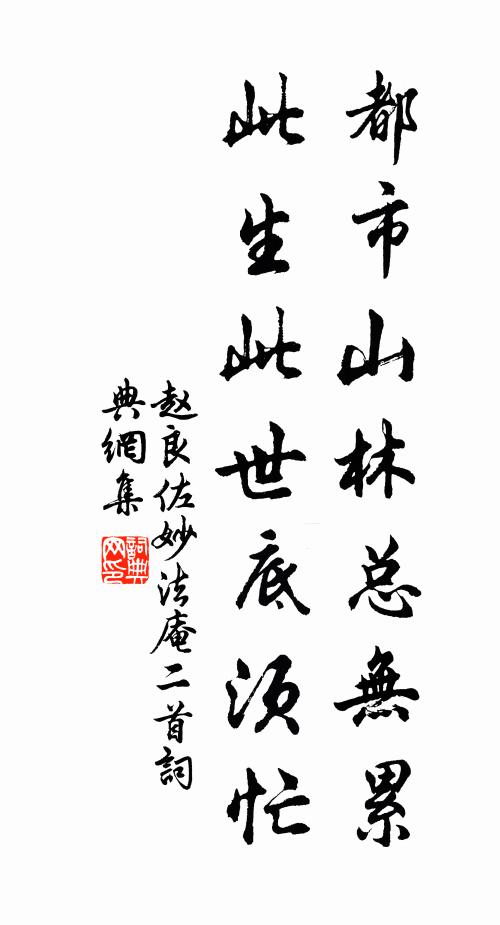 都市山林总無累
此生此世底须忙
赵良佐妙法庵二首詞
典網集
詞典
网印